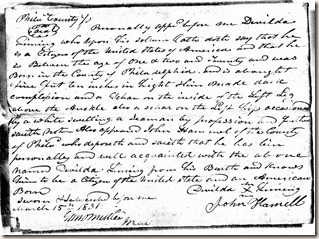 Phila County Ss
Personally appd before me Duilda
Lining who upon his solemn Oath doth say that he
is a Citizen of the United States of America and that he
is Between the age of one & two and twenty and was
Born in the County of Philadelphia and is about
five feet ten inches in hight Slim made dark
complexion and a Schar on the inside of the left Leg
above the Anckle also a schar on the Left Leg occasioned
by a white swelling a seaman by profession and further
saith Not. Also appeared John Hammel of the County
of Phila who deposeth and saith that he has been
personally and well acquainted with the above
named Duilda Lining from his Birth and knows
him to be a Citizen of the United States and an American
Born
Duilda Lining
Sworn & Subscribed before me
March 15th 1831
John Hamell